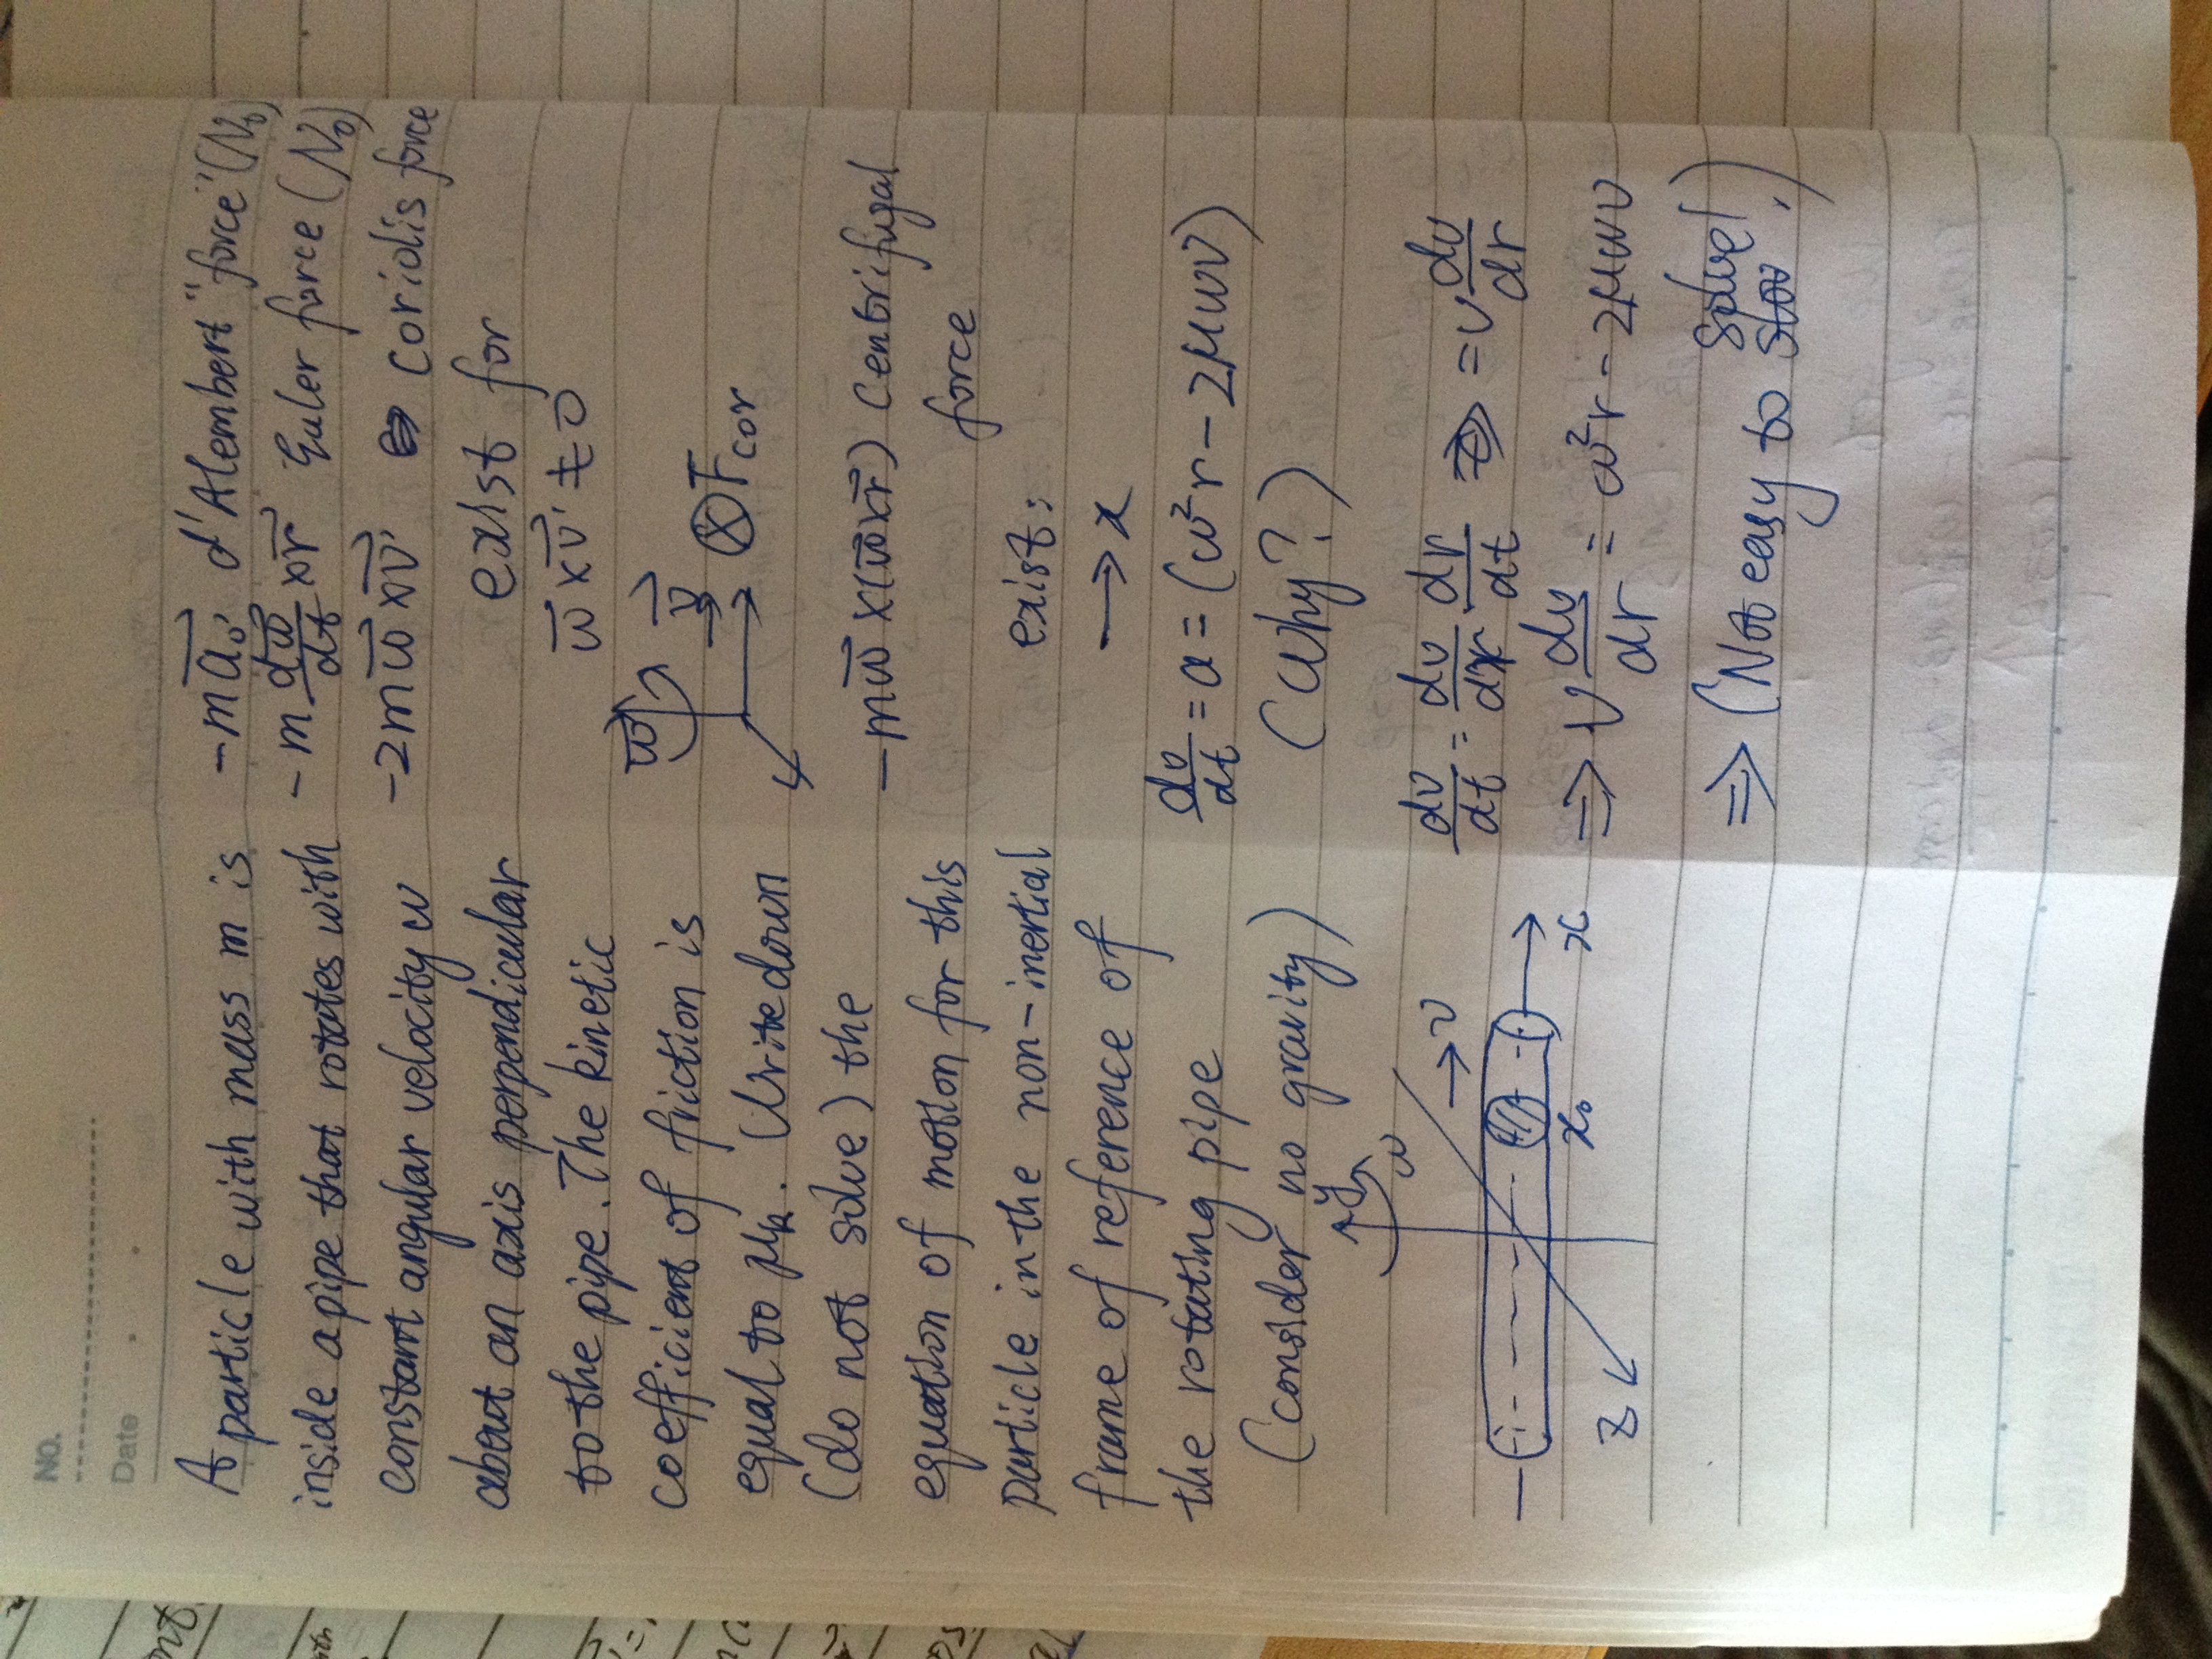 NO.
Date
A particle with mass m is
inside a pipe that rotates with
constant angular velocity ω
about an axis perpendicular
to the pipe. The kinetic
coefficient of friction is
equal to μk. Write down
(do not solve) the
equation of motion for this
particle in the non-inertial
frame of reference of
the rotating pipe
(consider no gravity)
y
ω
→v
x₀
x
z
-m a⃗₀, d'Alembert "force" (No)
-m dω⃗/dt × r⃗ Euler force (No)
-2mω⃗×v⃗' coriolis force
exist for
ω⃗×v⃗' ≠ 0
ω⃗
v⃗
⊗Fcor
-mω⃗×(ω⃗×r⃗) Centrifugal
force
exist:
→x
dv/dt = a = (ω²r - 2μωv)
(Why?)
dv/dt = dv/dr · dr/dt = v dv/dr
⇒ v dv/dr = ω²r - 2μωv
⇒ (Not easy to solve!)